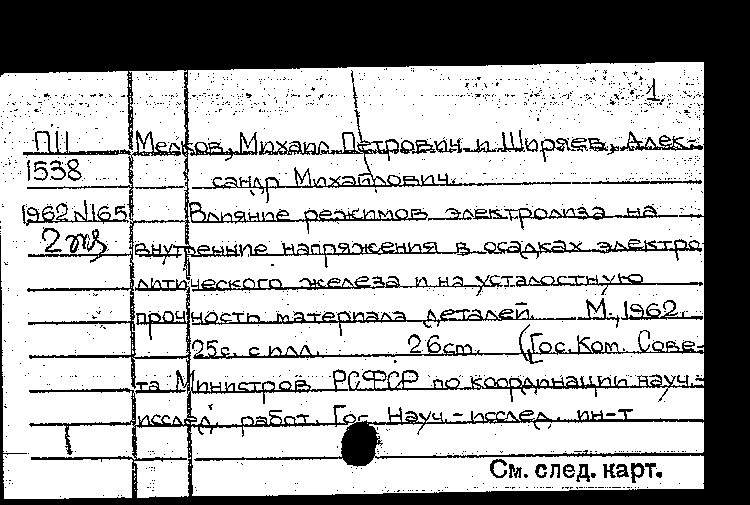 1
ПII Мелков, Михаил Петрович и Ширяев, Алек-
1538 сандр Михайлович.
1962 N165 Влияние режимов электролиза на
2 внутренние напряжения в осадках электро
литического железа и на усталостную
прочность материала деталей. М., 1962.
25с. с илл. 26см. (Гос. Ком. Сове-
та Министров РСФСР по координации науч.-
исслед. работ. Гос. Науч.-исслед. ин-т
1
См. след. карт.